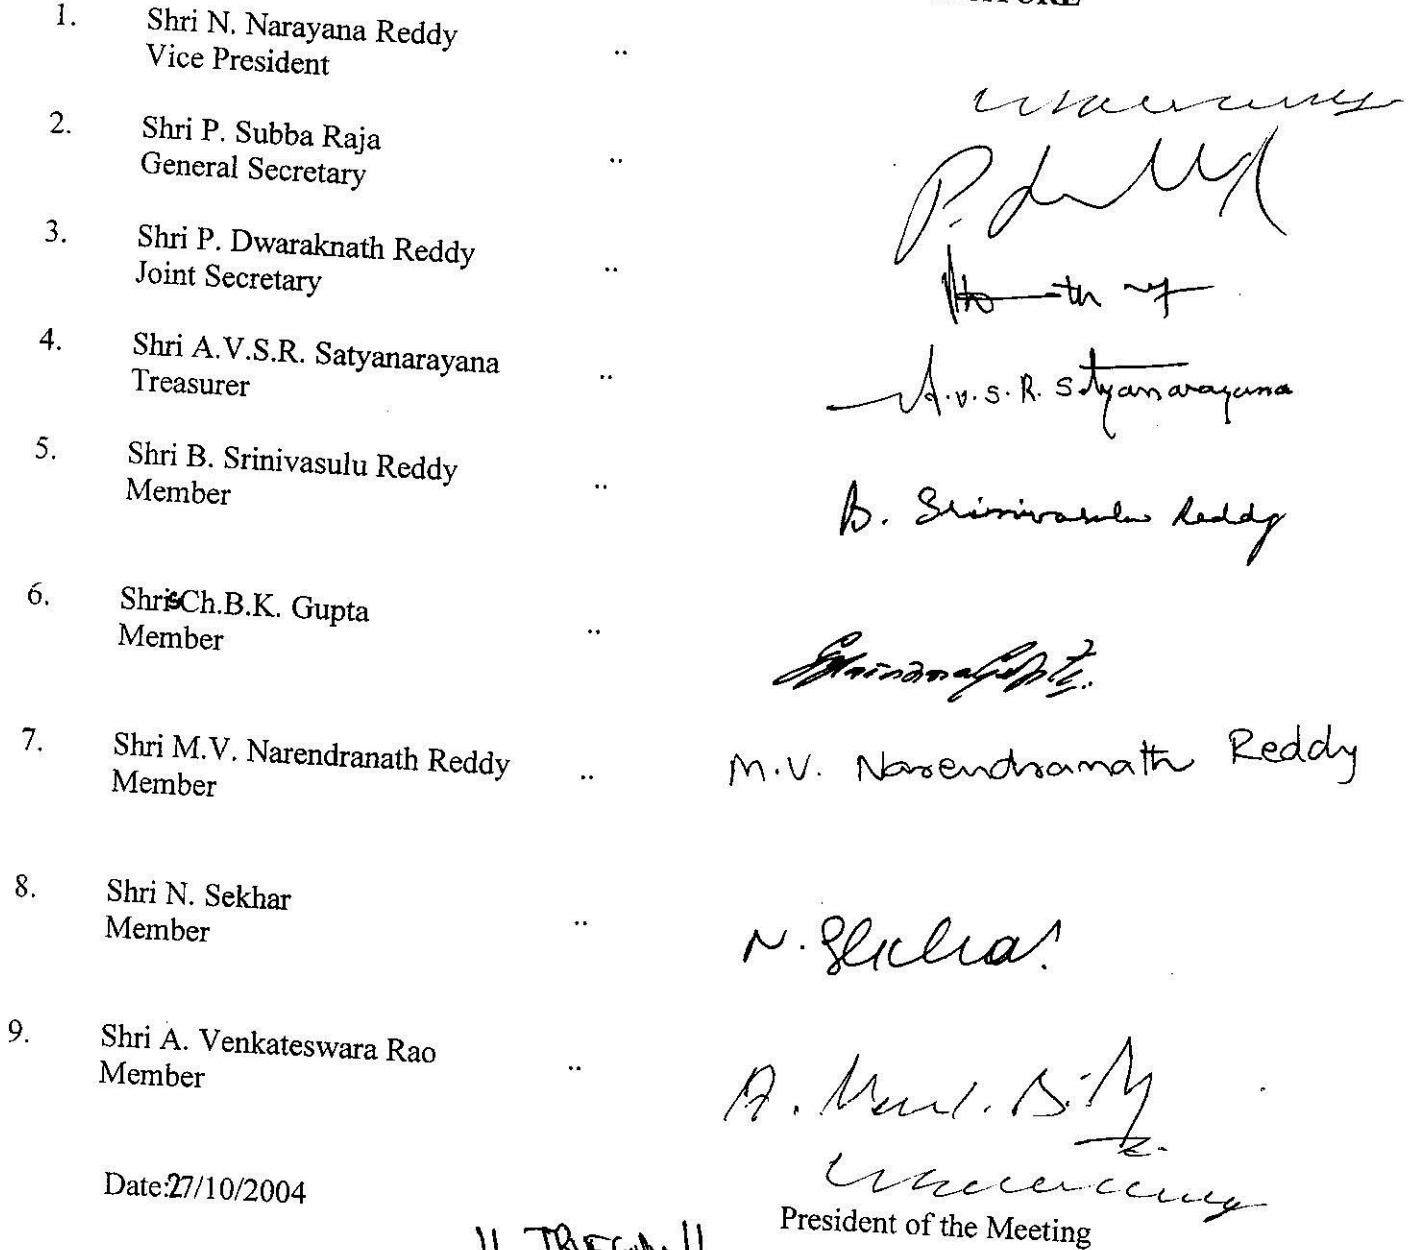 1. Shri N. Narayana Reddy ..
Vice President
2. Shri P. Subba Raja ..
General Secretary
3. Shri P. Dwaraknath Reddy ..
Joint Secretary
4. Shri A.V.S.R. Satyanarayana .. A.V.S.R. Satyanarayana
Treasurer
5. Shri B. Srinivasulu Reddy .. B. Srinivasulu Reddy
Member
6. Shri Ch.B.K. Gupta ..
Member
7. Shri M.V. Narendranath Reddy .. M.V. Narendranath Reddy
Member
8. Shri N. Sekhar .. N. Sekhar
Member
9. Shri A. Venkateswara Rao ..
Member
Date:27/10/2004
President of the Meeting